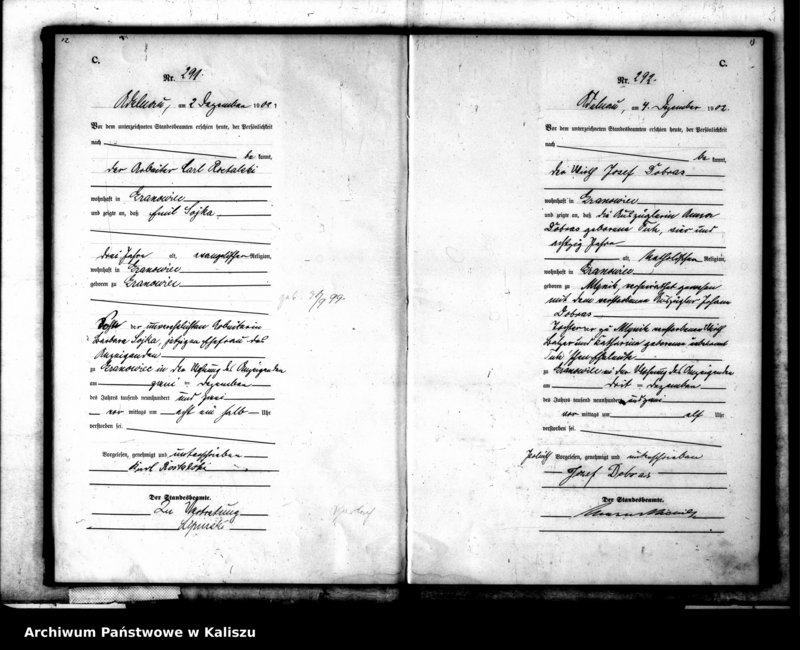 C.
Nr. 291.
Adelnau, am 2 Dezember 1902
Vor dem unterzeichneten Standesbeamten erschien heute, der Persönlichkeit
nach
be kannt,
der Arbeiter Carl Rostalski
wohnhaft in Granowiec
und zeigte an, daß Emil Sojka
drei Jahre alt, evangelischer Religion,
wohnhaft in Granowiec
geboren zu Granowiec
der unverehelichten Arbeiterin
Barbara Sojka, jetzigen Ehefrau des
Anzeigenden
zu Granowiec in der Wohnung des Anzeigenden
am zwei Dezember
des Jahres tausend neunhundert und zwei
vor mittags um acht ein halb Uhr
verstorben sei.
Vorgelesen, genehmigt und unterschrieben
Karl Rostalski
Der Standesbeamte.
In Vertretung
geb. 30/9 99
C.
Nr. 292.
Adelnau, am 4. Dezember 1902.
Vor dem unterzeichneten Standesbeamten erschien heute, der Persönlichkeit
nach
be kannt,
der Wirth Josef Dobras
wohnhaft in Granowiec
und zeigte an, daß die Auszüglerin
Dobras geborene vier und
achtzig Jahre
alt, katholischer Religion,
wohnhaft in Granowiec
geboren zu Mlynik, verheirathet gewesen
mit dem verstorbenen Auszügler Johann
Dobras
Tochter der zu Mlynik verstorbenen Wirth
und Katharina geborene unbekannt
zu Granowiec in der Wohnung des Anzeigenden
am drei Dezember
des Jahres tausend neunhundert und zwei
vor mittags um elf Uhr
verstorben sei.
Vorgelesen, genehmigt und unterschrieben
Josef Dobras
Der Standesbeamte.
Archiwum Państwowe w Kaliszu